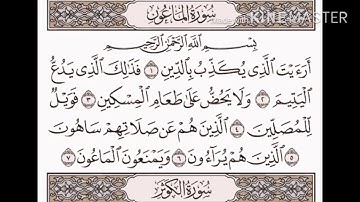 سُورَةُ المَاعُونِ
Made with KINEMASTER
بِسْمِ اللَّهِ الرَّحْمَٰنِ الرَّحِيمِ
أَرَءَيْتَ الَّذِي يُكَذِّبُ بِالدِّينِ ١ فَذَٰلِكَ الَّذِي يَدُعُّ
الْيَتِيمَ ٢ وَلَا يَحُضُّ عَلَىٰ طَعَامِ الْمِسْكِينِ ٣ فَوَيْلٌ
لِّلْمُصَلِّينَ ٤ الَّذِينَ هُمْ عَن صَلَاتِهِمْ سَاهُونَ
٥ الَّذِينَ هُمْ يُرَاءُونَ ٦ وَيَمْنَعُونَ الْمَاعُونَ ٧
سُورَةُ الكَوْثَرِ